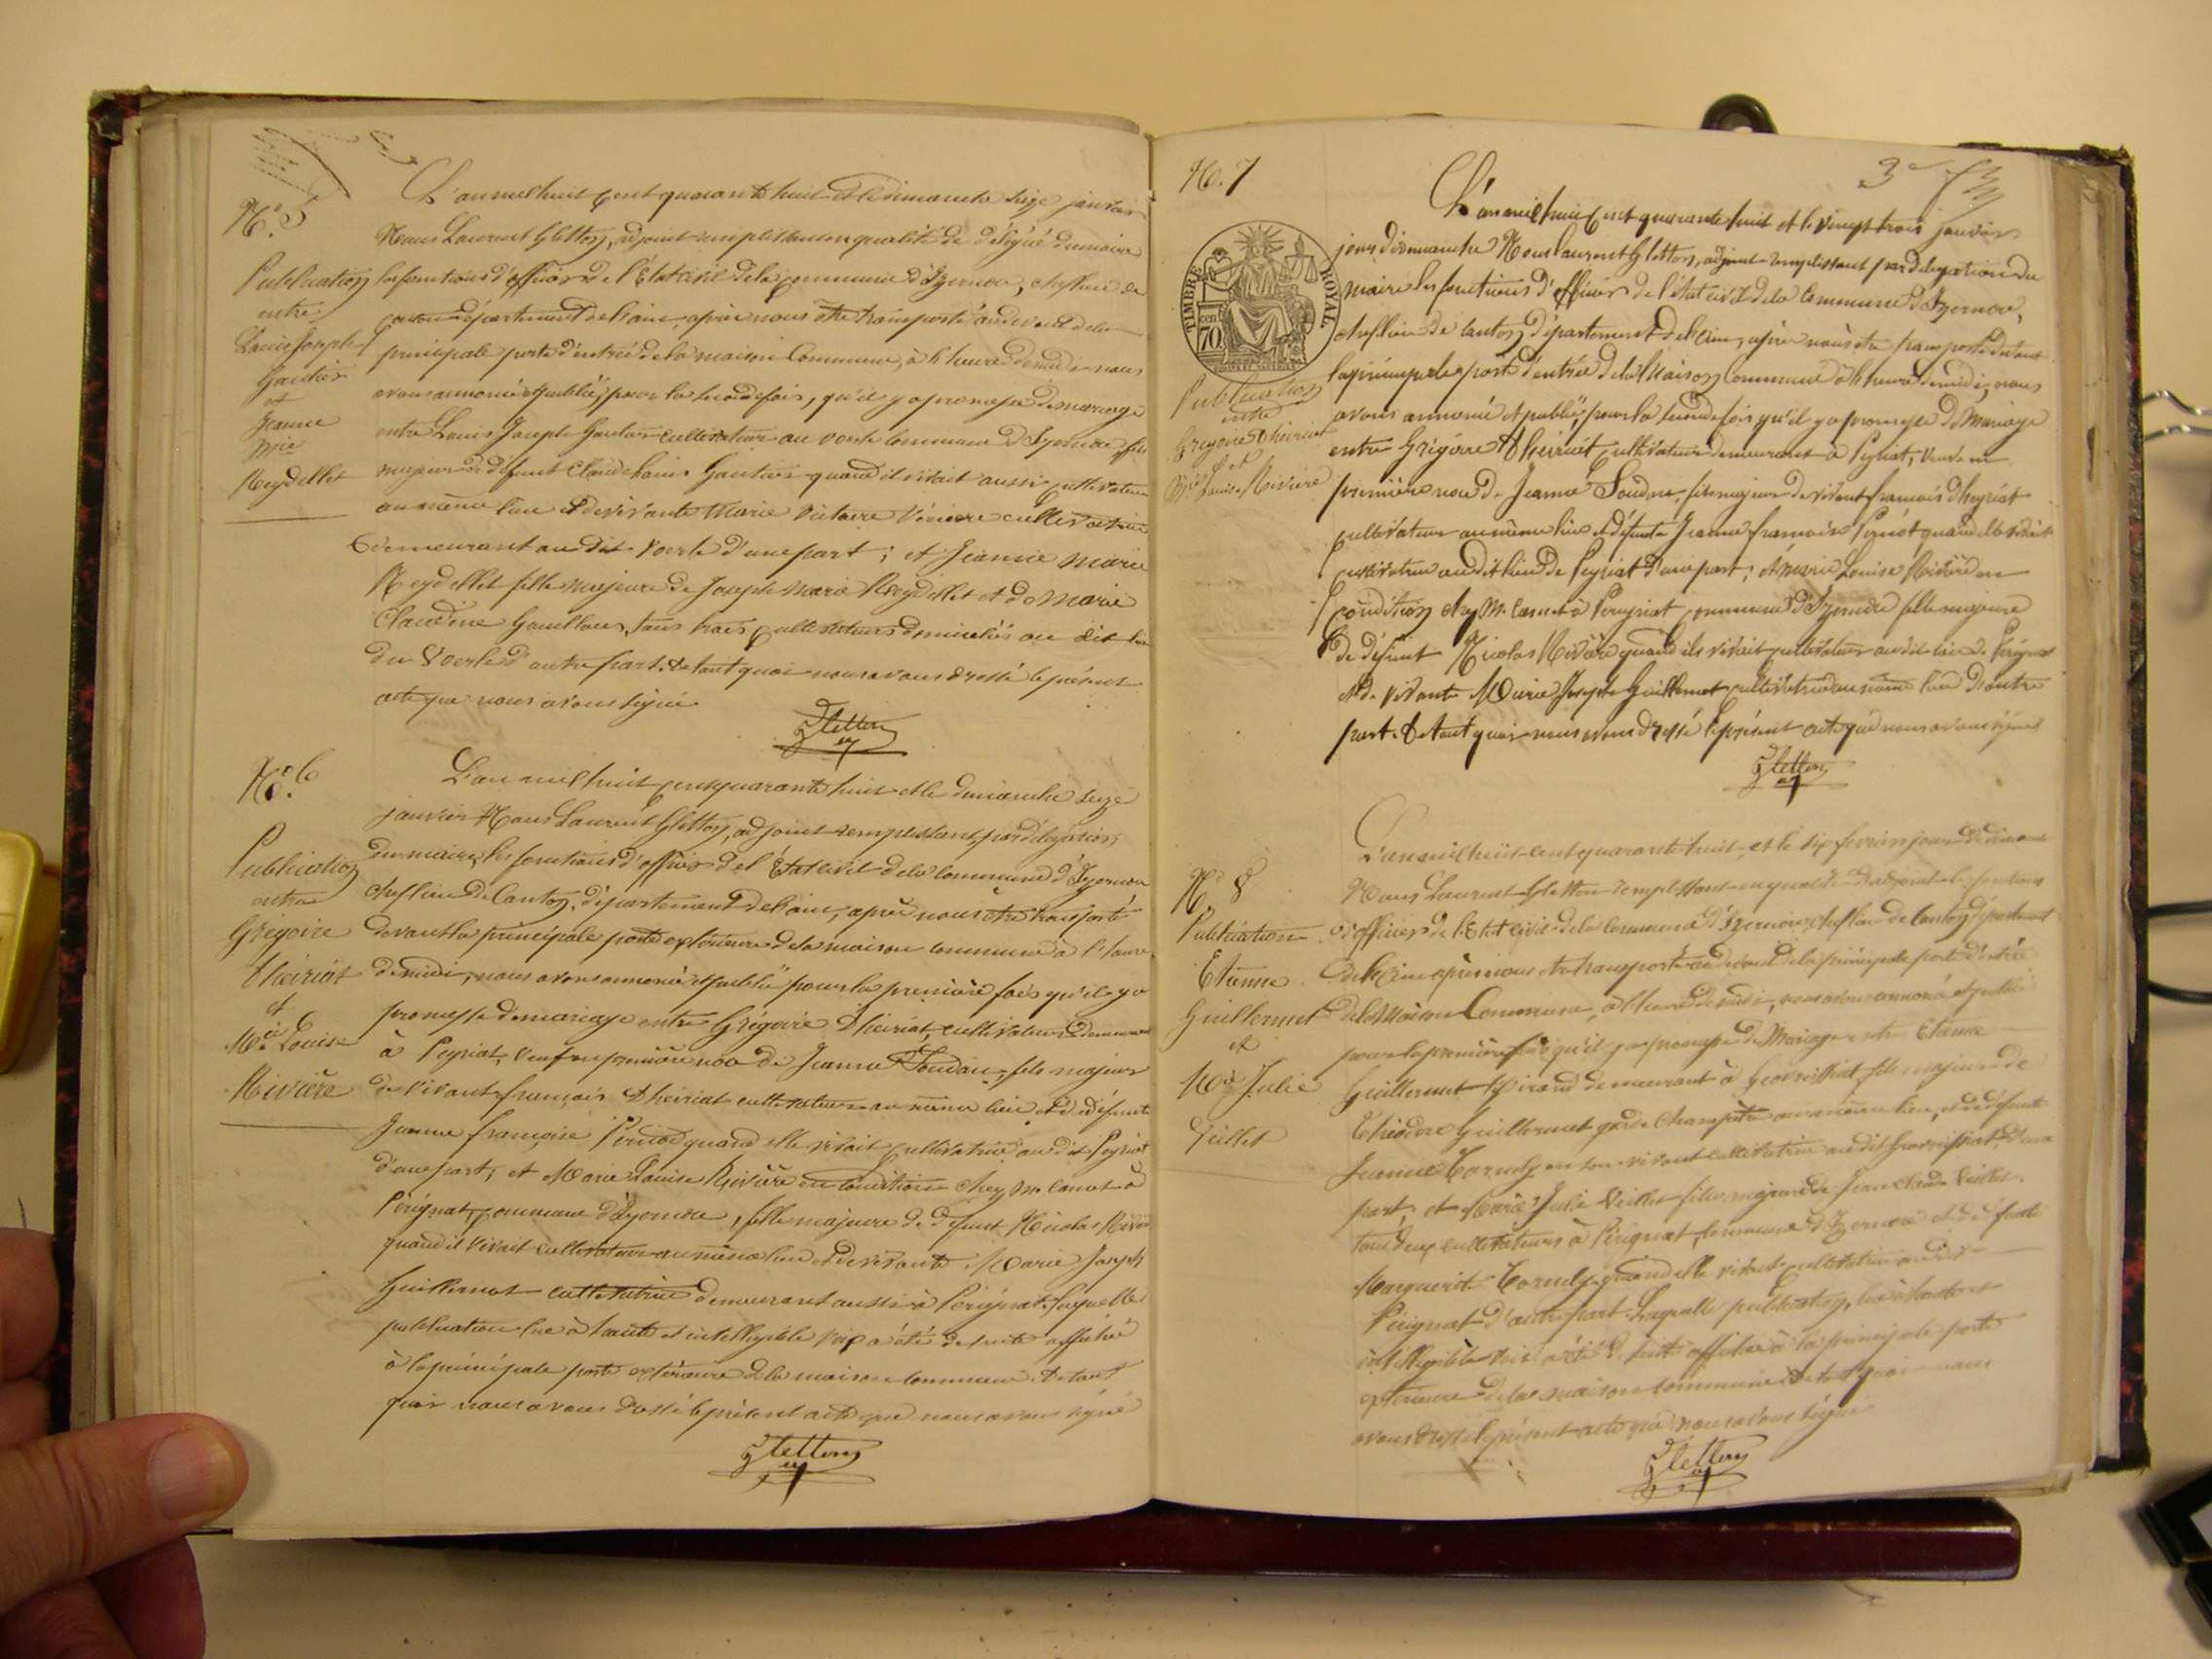 N°. 5
Publication
entre
Louis Joseph
Gautier
et
Jeanne
Mie
Reydellet
L'an mil huit cent quarante huit et le dimanche seize janvier
Nous Laurent Gletton, adjoint remplissant en qualité de délégué du maire
les fonctions d'officier de l'Etat civil de la commune d'Izernore, chef lieu de
canton département de l'ain, après nous être transporté au devant de la
principale porte d'entrée de la maison Commune, à l'heure de midi nous
avons annoncé et publié, pour la seconde fois, qu'il y a promesse de mariage
entre Louis Joseph Gautier cultivateur au Voerle Commune d'Izernore fils
majeur de défunt Claude Gautier quand il vivait aussi cultivateur
au même lieu et de vivante Marie Victoire cultivatrice
demeurant au dit Voerle d'une part ; et Jeanne Marie
Reydellet fille majeure de Joseph Marie Reydellet et de Marie
Claudine tous trois cultivateurs domiciliés au dit lieu
du Voerle d'autre part. De tout quoi nous avons dressé le présent
acte que nous avons signé
Gletton
N°. 6
Publication
entre
Grégoire
Dheiriat
et
Mie Louise
Rivière
L'an mil huit cent quarante huit et le dimanche seize
janvier Nous Laurent Gletton, adjoint remplissant, par délégation
du maire, les fonctions d'officier de l'Etat civil de la commune d'Izernore
chef lieu de Canton, département de l'ain, après nous être transporté
devant la principale porte extérieure de la maison commune à l'heure
de midi, nous avons annoncé et publié pour la première fois qu'il y a
promesse de mariage entre Grégoire Dheiriat, cultivateur demeurant
à Peyriat, veuf en première noce de Jeanne Soudan, fils majeur
de vivant françois Dheiriat cultivateur au même lieu et de défunte
Jeanne françoise quand elle vivait cultivatrice au dit Peyriat
d'une part ; et Marie Louise Rivière en condition chez M. à
Pérignat, commune d'Izernore, fille majeure de défunt Nicolas Rivière
quand il vivait cultivateur au même lieu et de vivante Marie Joseph
Guillermet cultivatrice demeurant aussi à Pérignat. Laquelle
publication lue à haute et intelligible voix a été de suite affichée
à la principale porte extérieure de la maison commune. De tout
quoi nous avons dressé le présent acte que nous avons signé
Gletton
N°. 7
3e
TIMBRE ROYAL
70 cent
Publication
entre
Grégoire Dheiriat
et
Mie Louise Rivière
L'an mil huit cent quarante huit et le vingt trois janvier
jour dimanche Nous Laurent Gletton, adjoint remplissant par délégation du
maire les fonctions d'officier de l'état civil de la Commune d'Izernore,
chef lieu de canton, département de l'ain, après nous être transporté devant
la principale porte d'entrée de la Maison Commune à l'heure de midi, nous
avons annoncé et publié, pour la seconde fois qu'il y a promesse de Mariage
entre Grégoire Dheiriat cultivateur demeurant à Peyriat, veuf en
première noce de Jeanne Soudan, fils majeur de vivant françois Dheyriat
cultivateur au même lieu et défunte Jeanne françoise quand elle vivait
cultivatrice au dit lieu de Peyriat d'une part ; et marie Louise Rivière en
condition chez M. à Perigniat commune d'Izernore fille majeure
de défunt Nicolas Rivière quand il vivait cultivateur au dit lieu de Pérignat
et de vivante Marie Joseph Guillermet cultivatrice au même lieu d'autre
part. De tout quoi nous avons dressé le présent acte que nous avons signé
Gletton
N°. 8
Publication
Etienne
Guillermet
et
Mie Julie
Juillet
L'an mil huit cent quarante huit, et le six fevrier jour de dimanche
Nous Laurent Gletton remplissant en qualité d'adjoint les fonctions
d'officier de l'Etat civil de la Commune d'Izernore, chef lieu de Canton département
de l'Ain après nous être transporté au devant de la principale porte d'entrée
de la Maison Commune, à l'heure de midi, nous avons annoncé et publié
pour la première fois qu'il y a promesse de Mariage entre Etienne
Guillermet demeurant à Geovreissiat, fils majeur de
Théodore Guillermet garde champêtre au même lieu, et de défunte
Jeanne en son vivant cultivatrice au dit Geovreissiat, d'une
part, et Marie Julie Juillet fille majeure de Jean Claude Juillet,
tous deux cultivateurs à Pérignat, Commune d'Izernore et de défunte
Marguerite quand elle vivait cultivatrice au dit
Pérignat d'autre part. Laquelle publication, lue à haute et
intelligible voix a été de suite affichée à la principale porte
extérieure de la maison commune. De tout quoi nous
avons dressé le présent acte que nous avons signé
Gletton